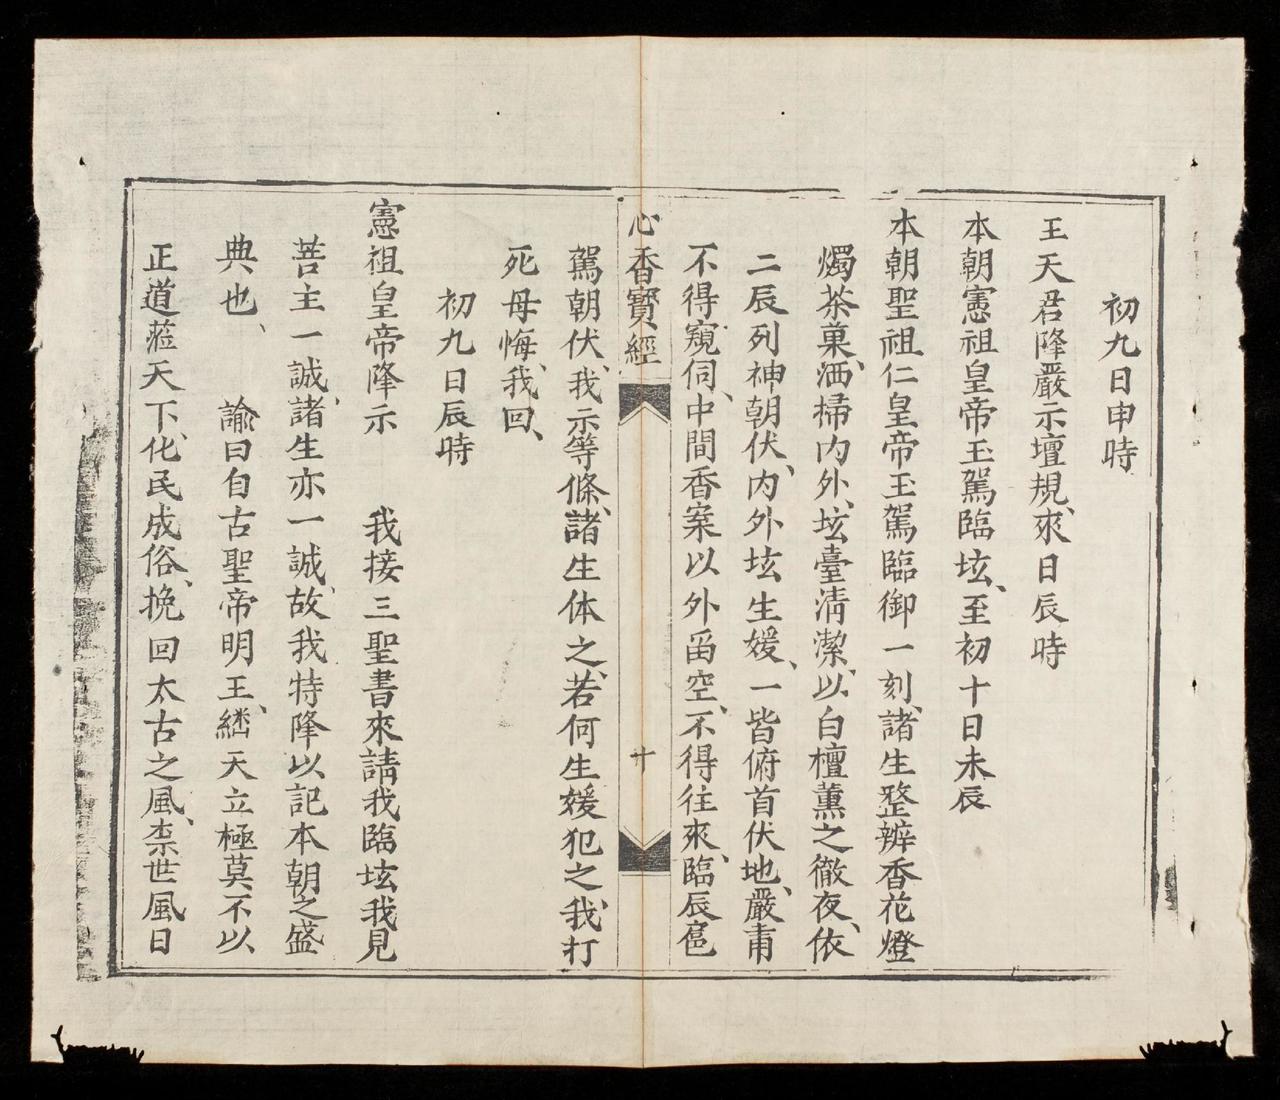 初九日申時
王天君降嚴示壇規、來日辰時
本朝憲祖皇帝玉駕臨坛、至初十日未辰
本朝聖祖仁皇帝玉駕臨御一刻、諸生整辨香花燈
燭茶菓、洒掃内外、坛臺清潔、以白檀薰之徹夜、依
二辰列神朝伏、内外坛生媛、一皆俯首伏地、嚴肅
不得窺伺、中間香案以外畱空、不得往來、臨辰扈
心香寶經
十
駕朝伏、我示等條、諸生体之、若何生媛犯之、我打
死母悔、我回、
初九日辰時
憲祖皇帝降示　我接三聖書來請我臨坛我見
菩主一誠、諸生亦一誠、故我特降以記本朝之盛
典也、　諭曰自古聖帝明王、継天立極莫不以
正道蒞天下、化民成俗、挽回太古之風、柰世風日